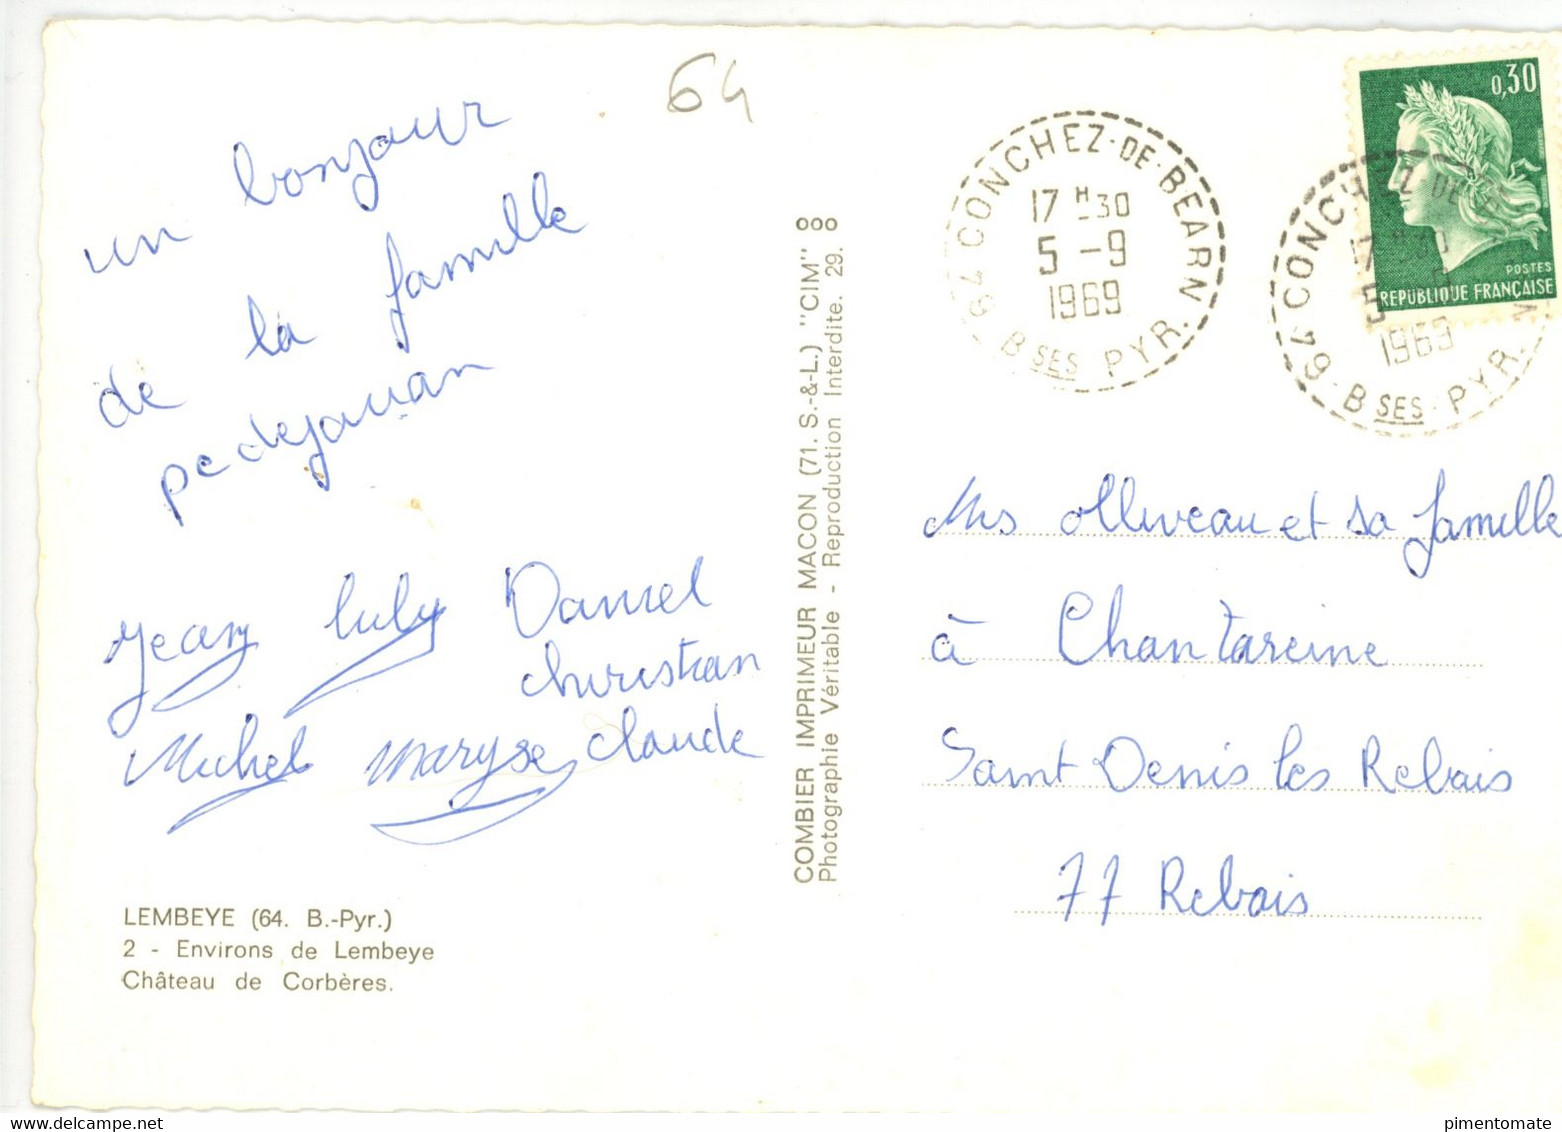 64
un bonjour
de la famille
pedejouan
Jean luly Daniel
christian
Michel maryse claude
LEMBEYE (64. B.-Pyr.)
2 - Environs de Lembeye
Château de Corbères.
COMBIER IMPRIMEUR MACON (71. S.-&-L.) "CIM"
Photographie Véritable - Reproduction Interdite. 29.
64 CONCHEZ-DE-BEARN
17 H 30
5 - 9
1969
BSES PYR.
0,30
POSTES
REPUBLIQUE FRANÇAISE
CONCHEZ DE
17 H 30
5 - 9
1969
BSES PYR.
Mrs olliveau et sa famille
à Chantareine
Saint Denis les Rebais
77 Rebais
pimentomate